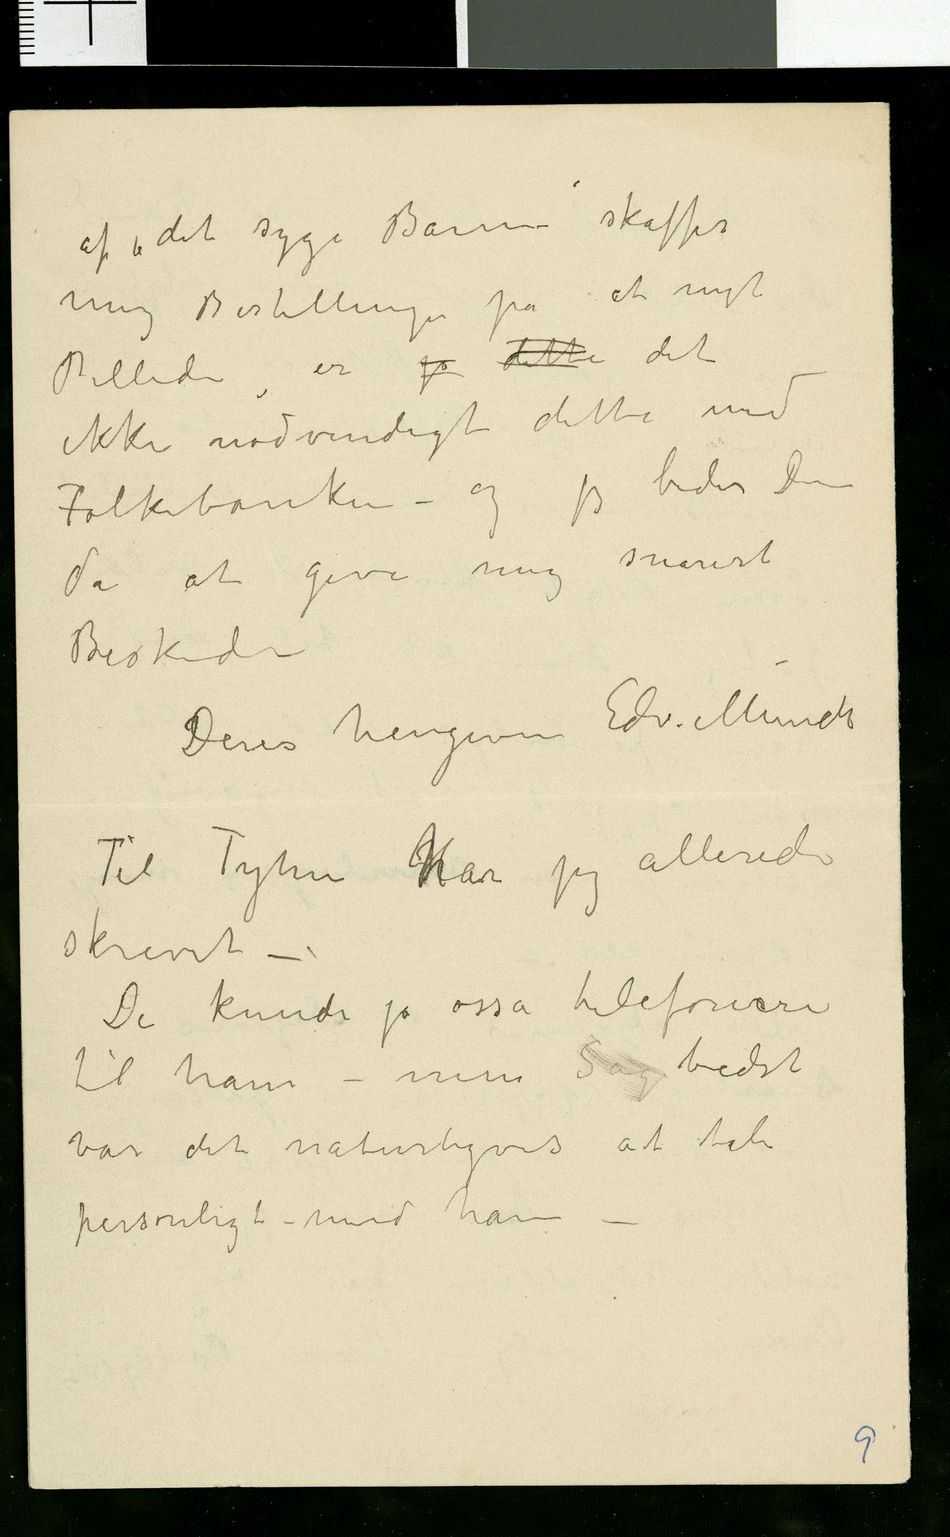 af „det syge Barn“ skaffes
mig Bestillinge på et nyt
Billede, er ja dette det
ikke nödvendigt dette med
Folkebanken – og jeg beder Dem
da at give mig snarest
Beskeden
Deres hengivne Edv. Munch
Til Tyhn Har jeg allerede
skrevet –
De kunde jo også telefonere
til ham – men Sag bedst
var det naturligvis at tale
personligt – med ham –
9